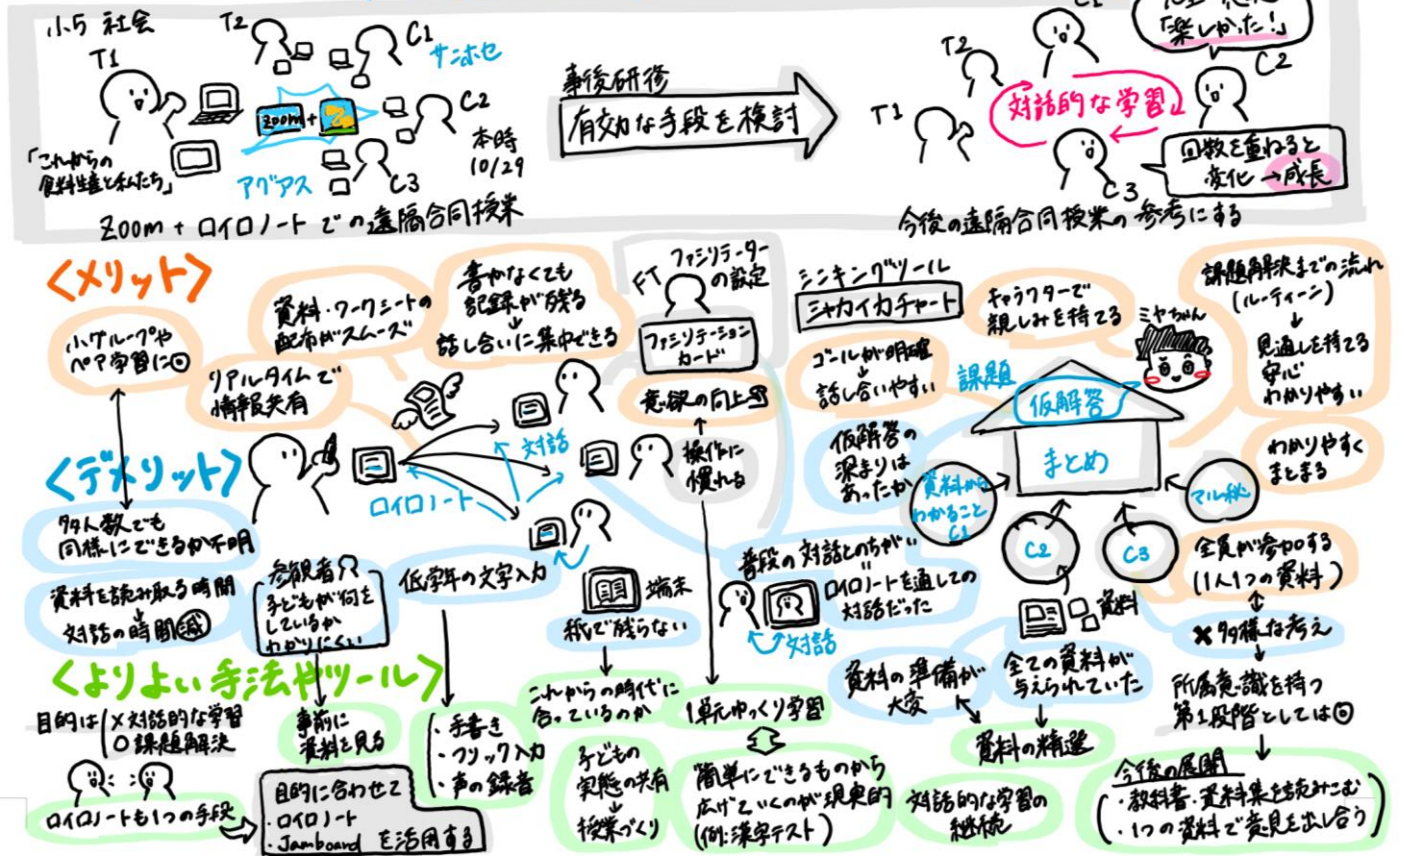 小5 社会
T1
T2
C1
サンホセ
zoom +
C2
本時
10/29
「これからの
食料生産と私たち」
アグアス
C3
Zoom + ロイロノートでの遠隔合同授業
事後研修
有効な手段を検討
C1
「楽しかった!」
T2
C2
T1
対話的な学習
C3
回数を重ねると
変化→成長
今後の遠隔合同授業の参考にする
<メリット>
小グループや
ペア学習に◎
資料・ワークシートの
配布がスムーズ
リアルタイムで
情報共有
書かなくても
記録が残る
↓
話し合いに集中できる
FT
ファシリテーター
の設定
ファシリテーション
カード
意欲の向上
↑
操作に
慣れる
シンキングツール
シャカイカチャート
ゴールが明確
↓
話し合いやすい
キャラクターで
親しみを持てる
ミヤちゃん
課題解決までの流れ
(ルーティーン)
↓
見通しを持てる
安心
わかりやすい
課題
仮解答
まとめ
わかりやすく
まとまる
仮解答の
深まりは
あったか
資料から
わかること
C1
C2
C3
マル秘
資料
全員が参加する
(1人1つの資料)
×多様な考え
<デメリット>
対話
ロイロノート
多人数でも
同様にできるか不明
資料を読み取る時間
対話の時間減
参観者
子どもが何を
しているか
わかりにくい
低学年の文字入力
端末
紙で残らない
普段の対話とのちがい
=
ロイロノートを通しての
対話だった
対話
資料の準備が
大変
全ての資料が
与えられていた
所属意識を持つ
第1段階としては◎
<よりよい手法やツール>
目的は
×対話的な学習
○課題解決
ロイロノートも1つの手段
事前に
資料を見る
目的に合わせて
・ロイロノート
・Jamboard を活用する
・手書き
・フリック入力
・声の録音
これからの時代に
合っているのか
子どもの
実態の共有
↓
授業づくり
1単元ゆっくり学習
簡単にできるものから
広げていくのが現実的
(例:漢字テスト)
資料の精選
対話的な学習の
継続
今後の展開
・教科書・資料集を読みこむ
・1つの資料で意見を出し合う